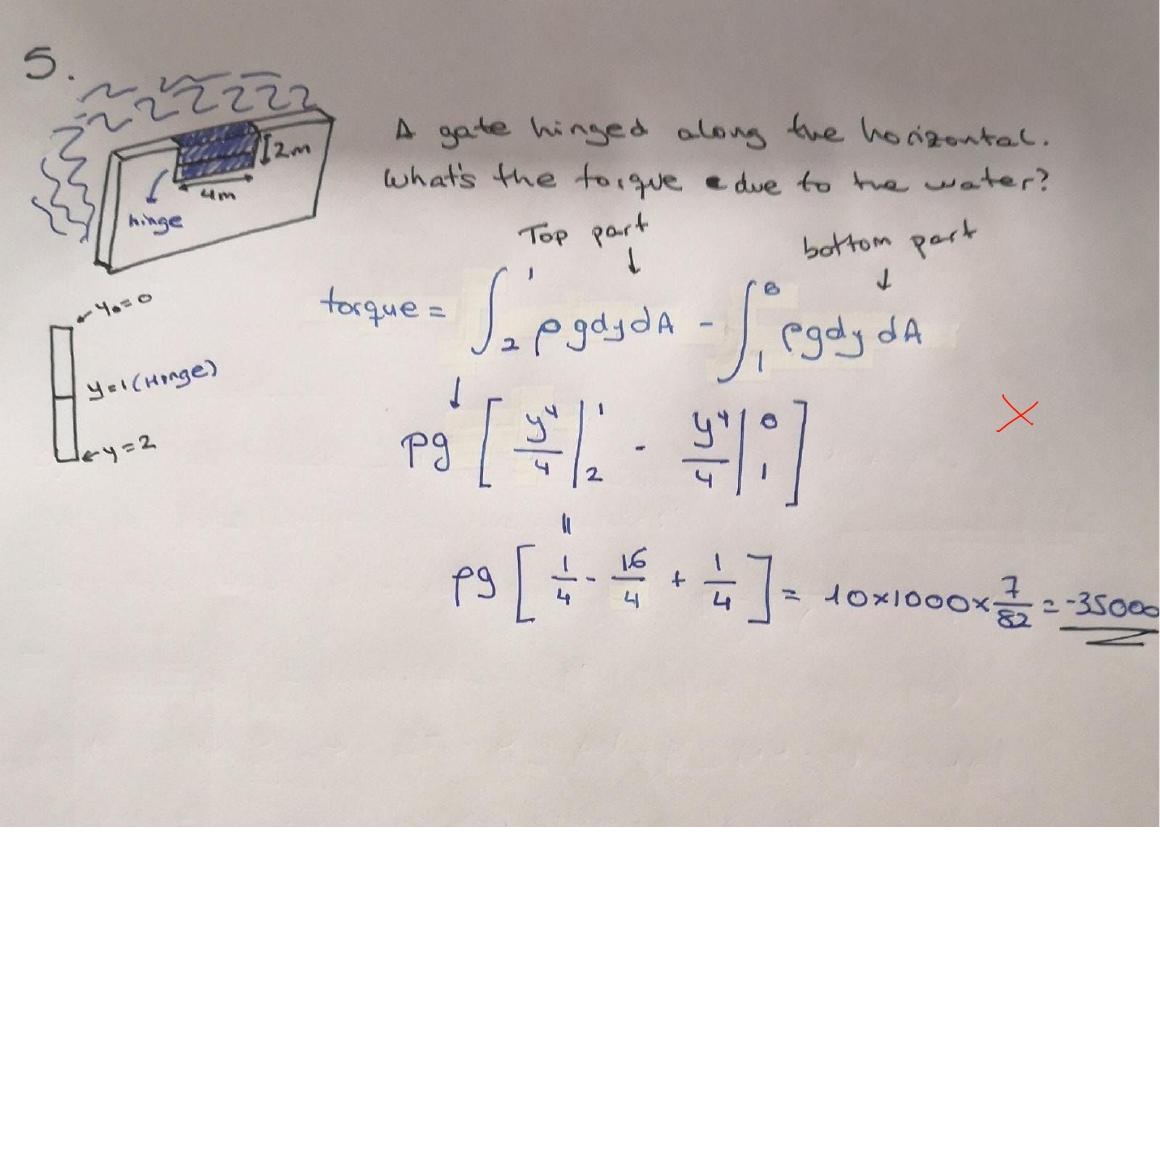 5.
A gate hinged along the horizontal.
What's the torque due to the water?
2m
4m
hinge
Top part
↓
bottom part
↓
y₀=0
y=1 (Hinge)
y=2
torque = ∫₂¹ ρgdydA - ∫₁⁰ ρgdy dA
↓
ρg [ y⁴/4 |₂¹ - y⁴/4 |₁⁰ ]
=
ρg [ 1/4 - 16/4 + 1/4 ] = 10x1000x 7/82 = -35000